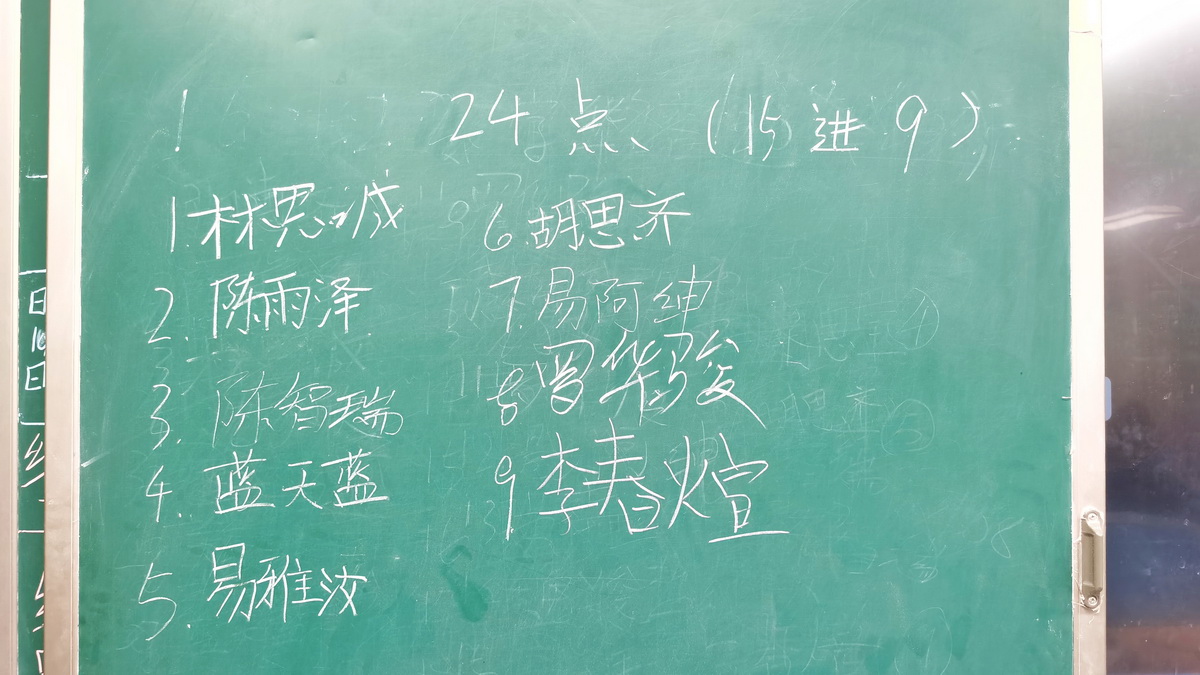 24点（15进9）
1.林思诚
2.陈雨泽
3.陈智瑞
4.蓝天蓝
5.易雅汝
6.胡思齐
7.易阿绅
8罗华骏
9.李春煊